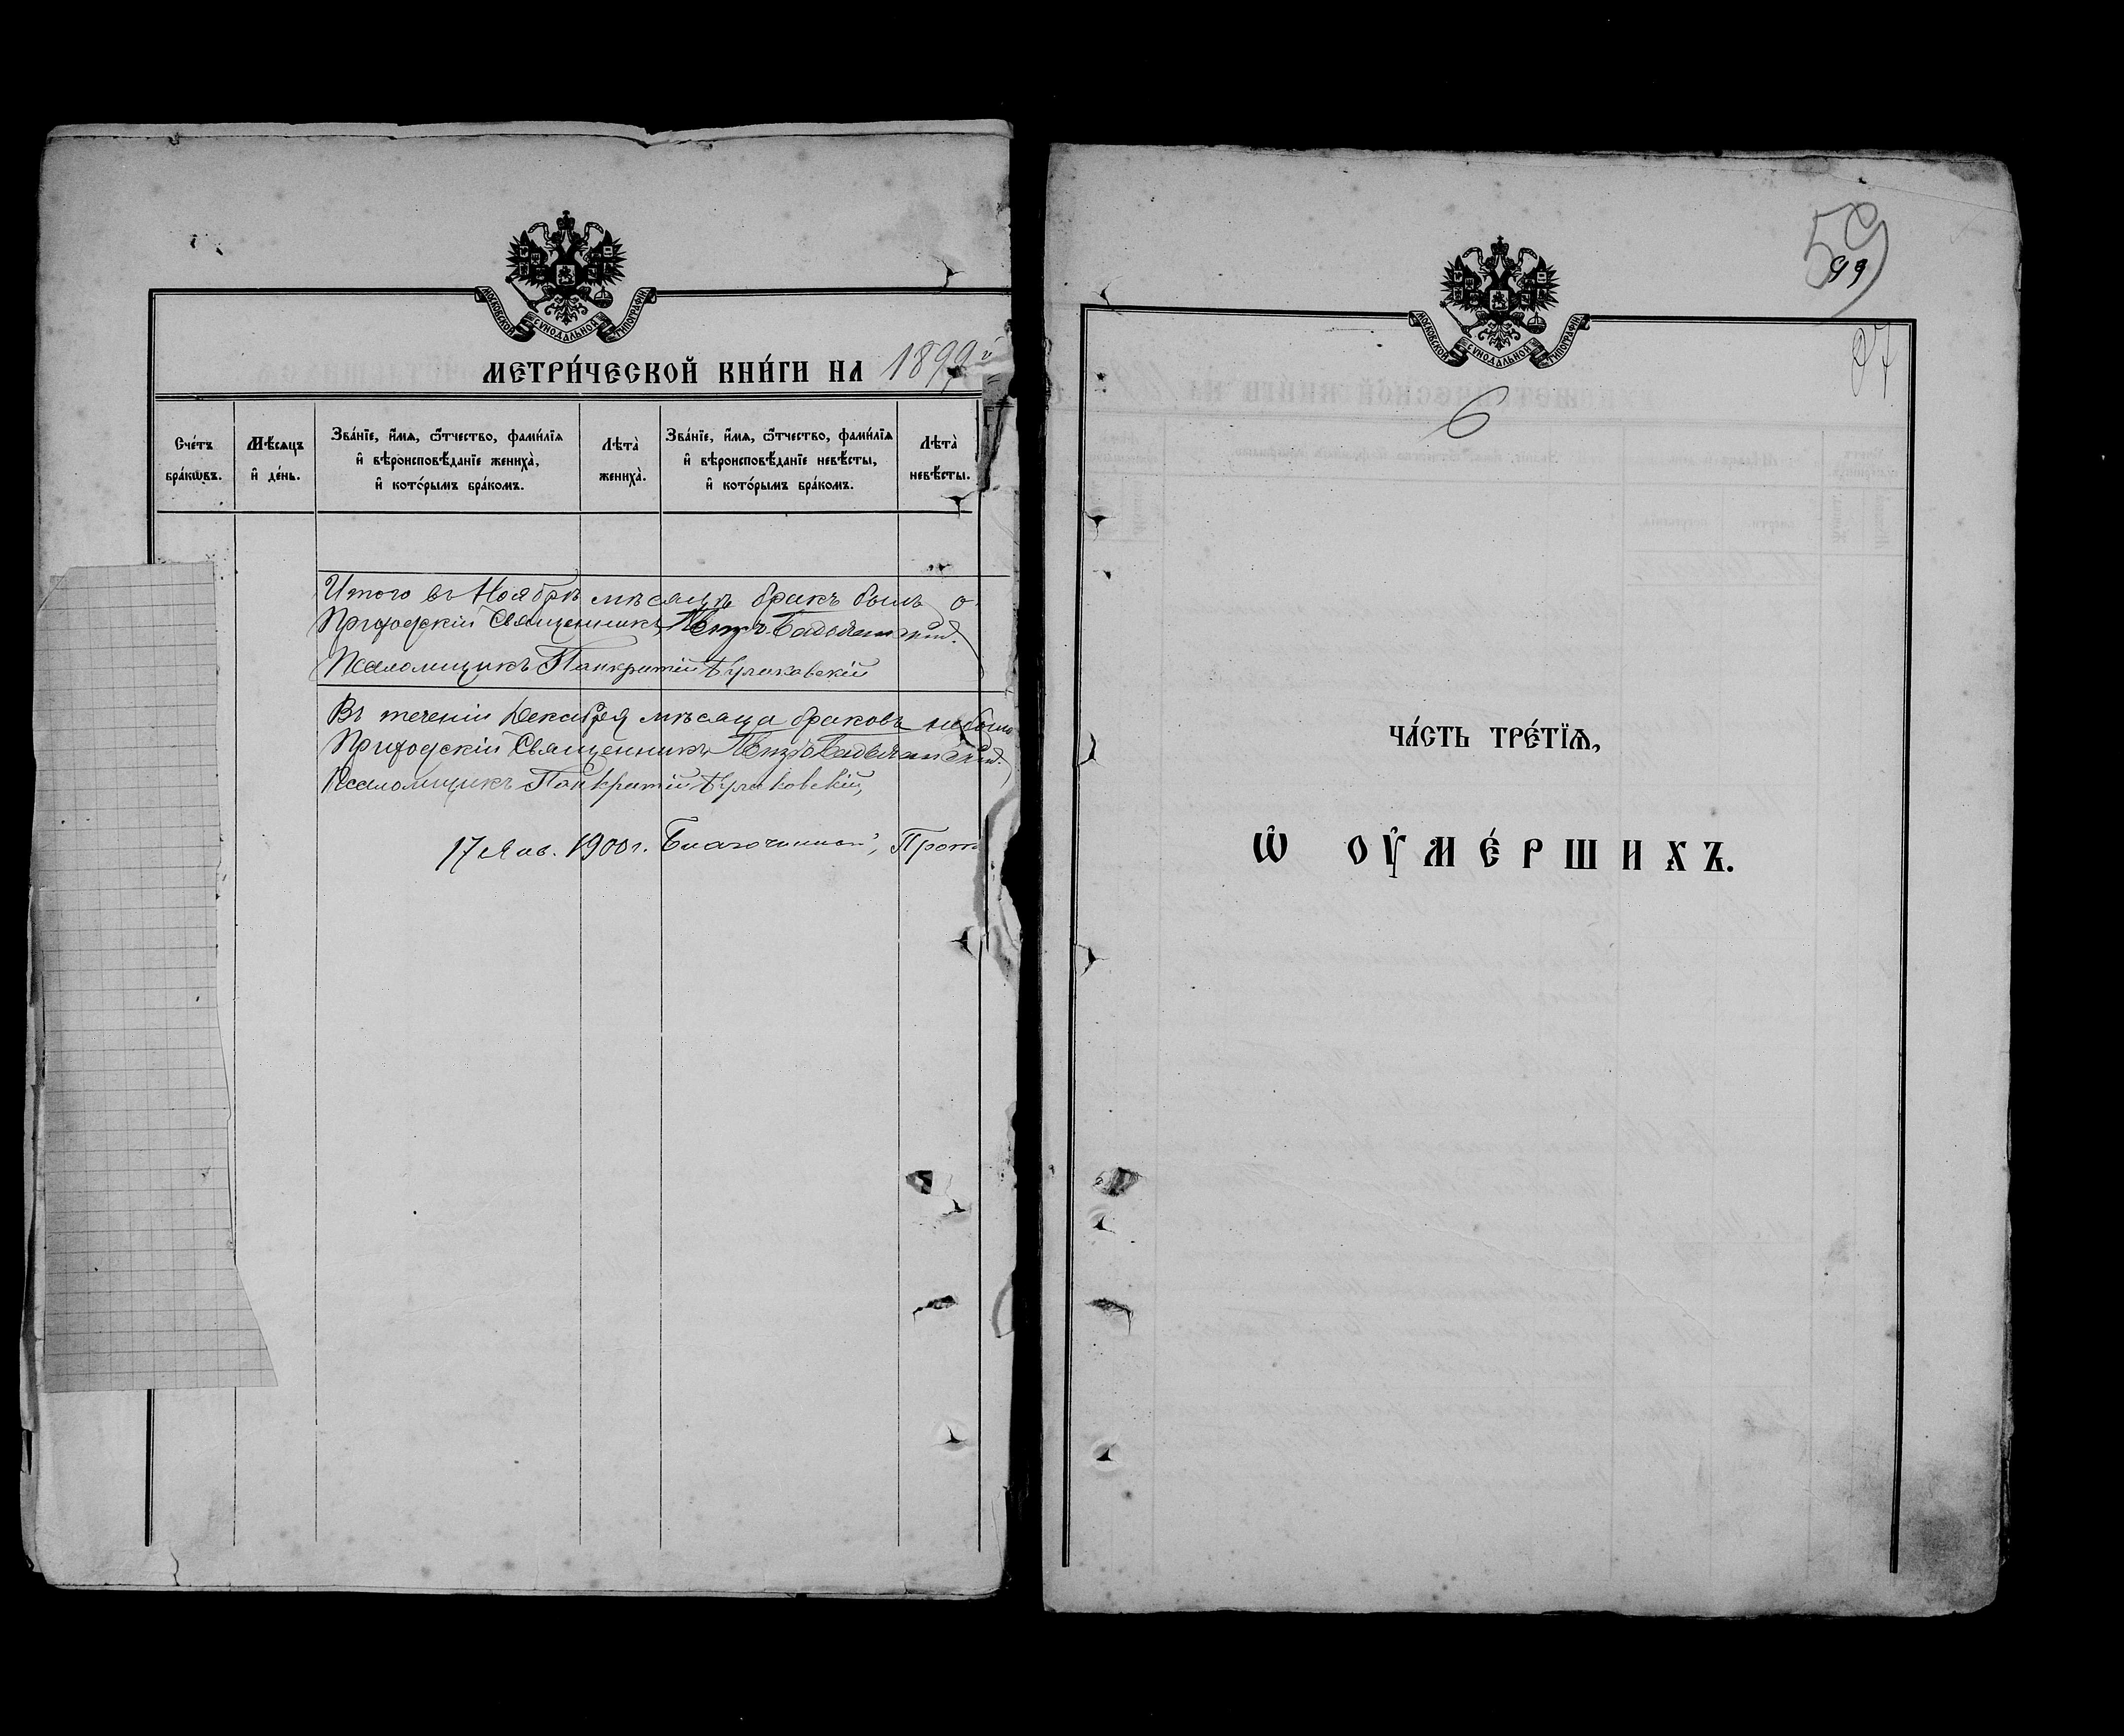 МОСКОВСКОЙ СѴНОДАЛЬНОЙ ТИПОГРАФІИ
МЕТРИ́ЧЕСКОЙ КНИ́ГИ НА 1899й
Сче́тъ бра́кѡвъ.
Мѣ́сяцъ и҆ де́нь.
Зва́нїе, и҆́мѧ, ѻ҆́тчество, фамı́лїѧ
и҆ вѣроисповѣ́данїе жениха̀,
и҆ кото́рымъ бра́комъ.
Лѣта̀ жениха̀.
Зва́нїе, и҆́мѧ, ѻ҆́тчество, фамı́лїѧ
и҆ вѣроисповѣ́данїе невѣ́сты,
и҆ кото́рымъ бра́комъ.
Лѣта̀ невѣ́сты.
Итого въ Ноябрѣ мѣсяцѣ бракъ былъ о
Приходскій Священникъ Петръ
Псаломщикъ Панкратій
Въ теченіи Декабря мѣсяца браковъ небыло
Приходскій Священникъ Петръ
Псаломщикъ Панкратій
17 Янв. 1900 г. Благочинный, Прот
59
99
97
МОСКОВСКОЙ СѴНОДАЛЬНОЙ ТИПОГРАФІИ
6
ЧА́СТЬ ТРЕ́ТЇѦ,
Ѡ҆ ОУ҆МЕ́РШИХЪ.